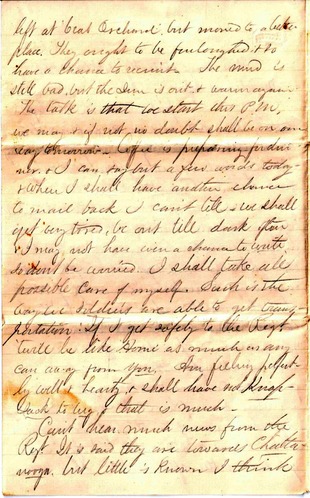 left at "Crab Orchard", but moved to a better
place. They ought to be furloughed & so
have a chance to recruit. The mud is
still bad, but the sun is out & warm again.
The talk is that we start this P.M.
we may & if not, no doubt shall be on our
way tomorrow - Coffee is preparing for din
ner & I can say but a few words today
& When I shall have another chance
to mail back I can't tell - we shall
get very tired, be out till dark often
& I may not have even a chance to write
so don't be worried. I shall take all
possible care of myself. Such is the
way soldiers are able to get trans
portation. If I get safely to the Regt
'twill be like Home as much as any
can away from You. Am feeling perfect
ly well & hearty & shall have no Knap
Sack to lug & that is much -
Can't hear much news from the
Reg. It is said they are towards Chatta
nooga, but little is known I think